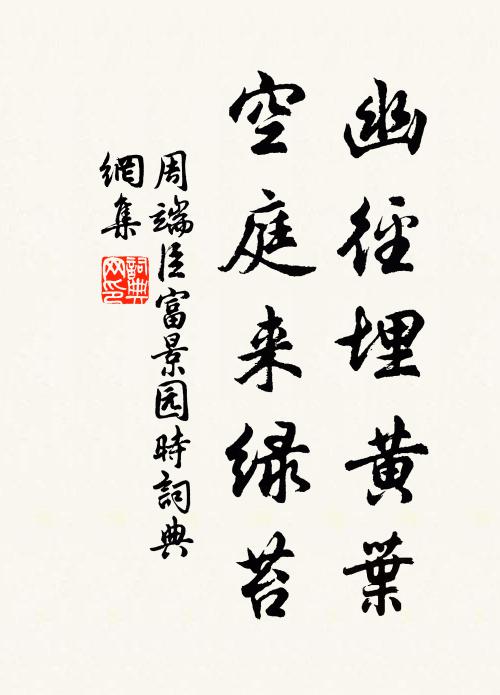 幽徑埋黄葉
空庭来緑苔
周端臣富景园時詞典
網集
詞典
网印